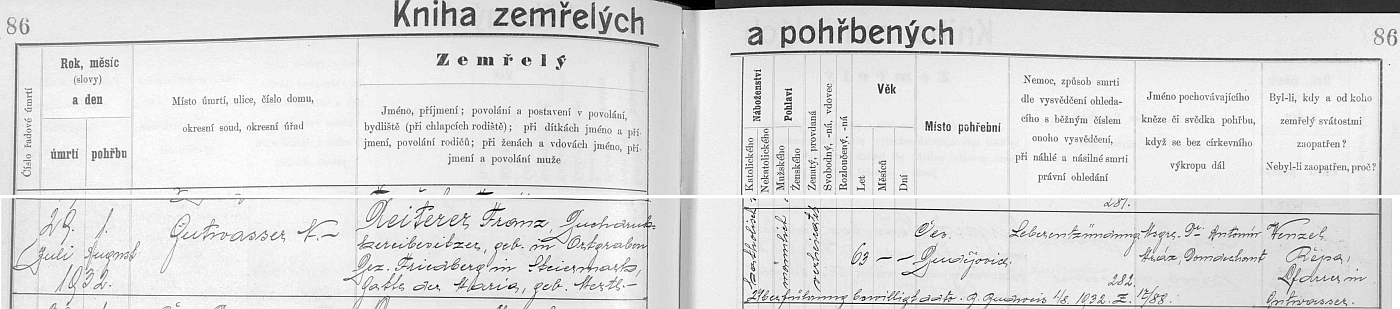 86
Kniha zemřelých
a pohřbených
86
Číslo řadové úmrtí
Rok, měsíc
(slovy)
a den
úmrtí
pohřbu
Místo úmrtí, ulice, číslo domu,
okresní soud, okresní úřad
Zemřelý
Jméno, příjmení; povolání a postavení v povolání,
bydliště (při chlapcích rodiště); při dítkách jméno a pří-
jmení, povolání rodičů; při ženách a vdovách jméno, pří-
jmení a povolání muže
Náboženství
Katolického
Nekatolického
Pohlaví
Mužského
Ženského
Ženatý, provdaná
Svobodný, -ná, vdovec
Rozloučený, -ná
Věk
Let
Měsíců
Dní
Místo pohřební
Nemoc, způsob smrti
dle vysvědčení ohleda-
cího s běžným číslem
onoho vysvědčení,
při náhlé a násilné smrti
právní ohledání
Jméno pochovávajícího
kněze či svědka pohřbu,
když se bez církevního
výkropu dál
Byl-li, kdy a od koho
zemřelý svátostmi
zaopatřen?
Nebyl-li zaopatřen, proč?
281.
29. 1.
Juli August
1932.
Gutwasser N.–
Reiterer Franz, Buchdruk-
kereibesitzer, geb. in Ortgraben
Bez. Friedberg in Steiermark,
Gatte der Maria, geb.
katholisch
männlich
verheiratet
63 – –
Čes.
Budějovice
Leberentzündung
282.
Msgre. Dr. Antonín
Domdechant
Wenzel
Řepa,
Pfarrer in
Gutwasser.
Überführung bewilligt dato. B. Budweis 1/8. 1932. Z. 17/88.